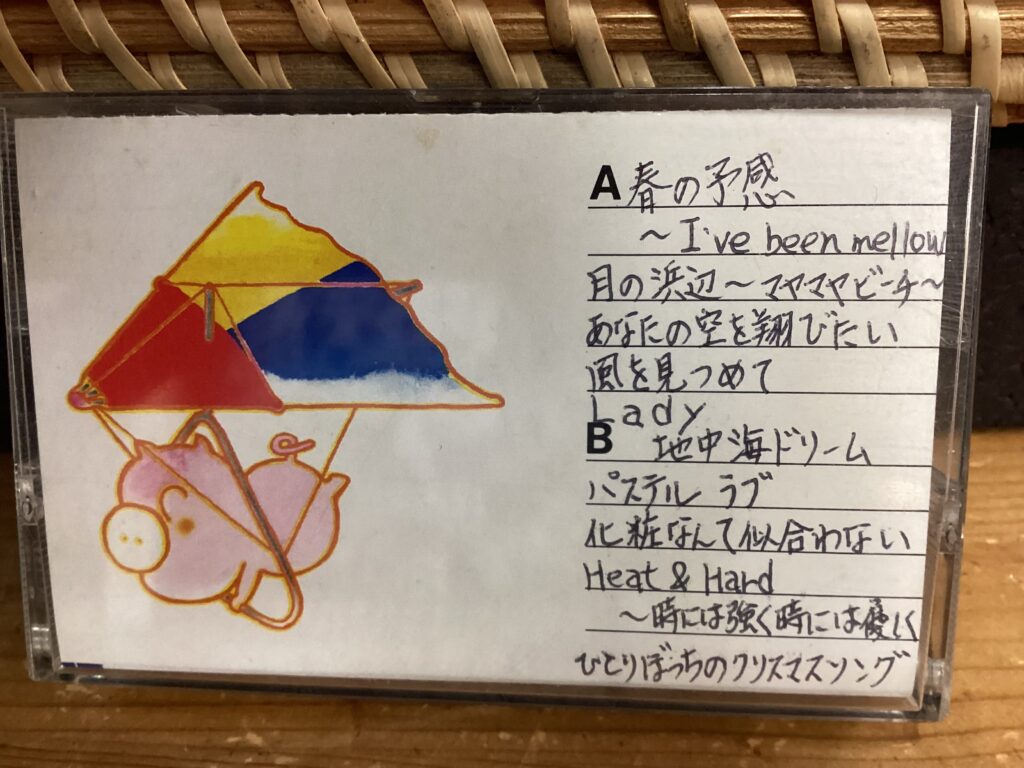 A 春の予感
～I've been mellow
月の浜辺～マヤマヤビーチ～
あなたの空を翔びたい
風を見つめて
Lady
B 地中海ドリーム
パステル ラブ
化粧なんて似合わない
Heat & Hard
～時には強く時には優しく
ひとりぼっちのクリスマスソング